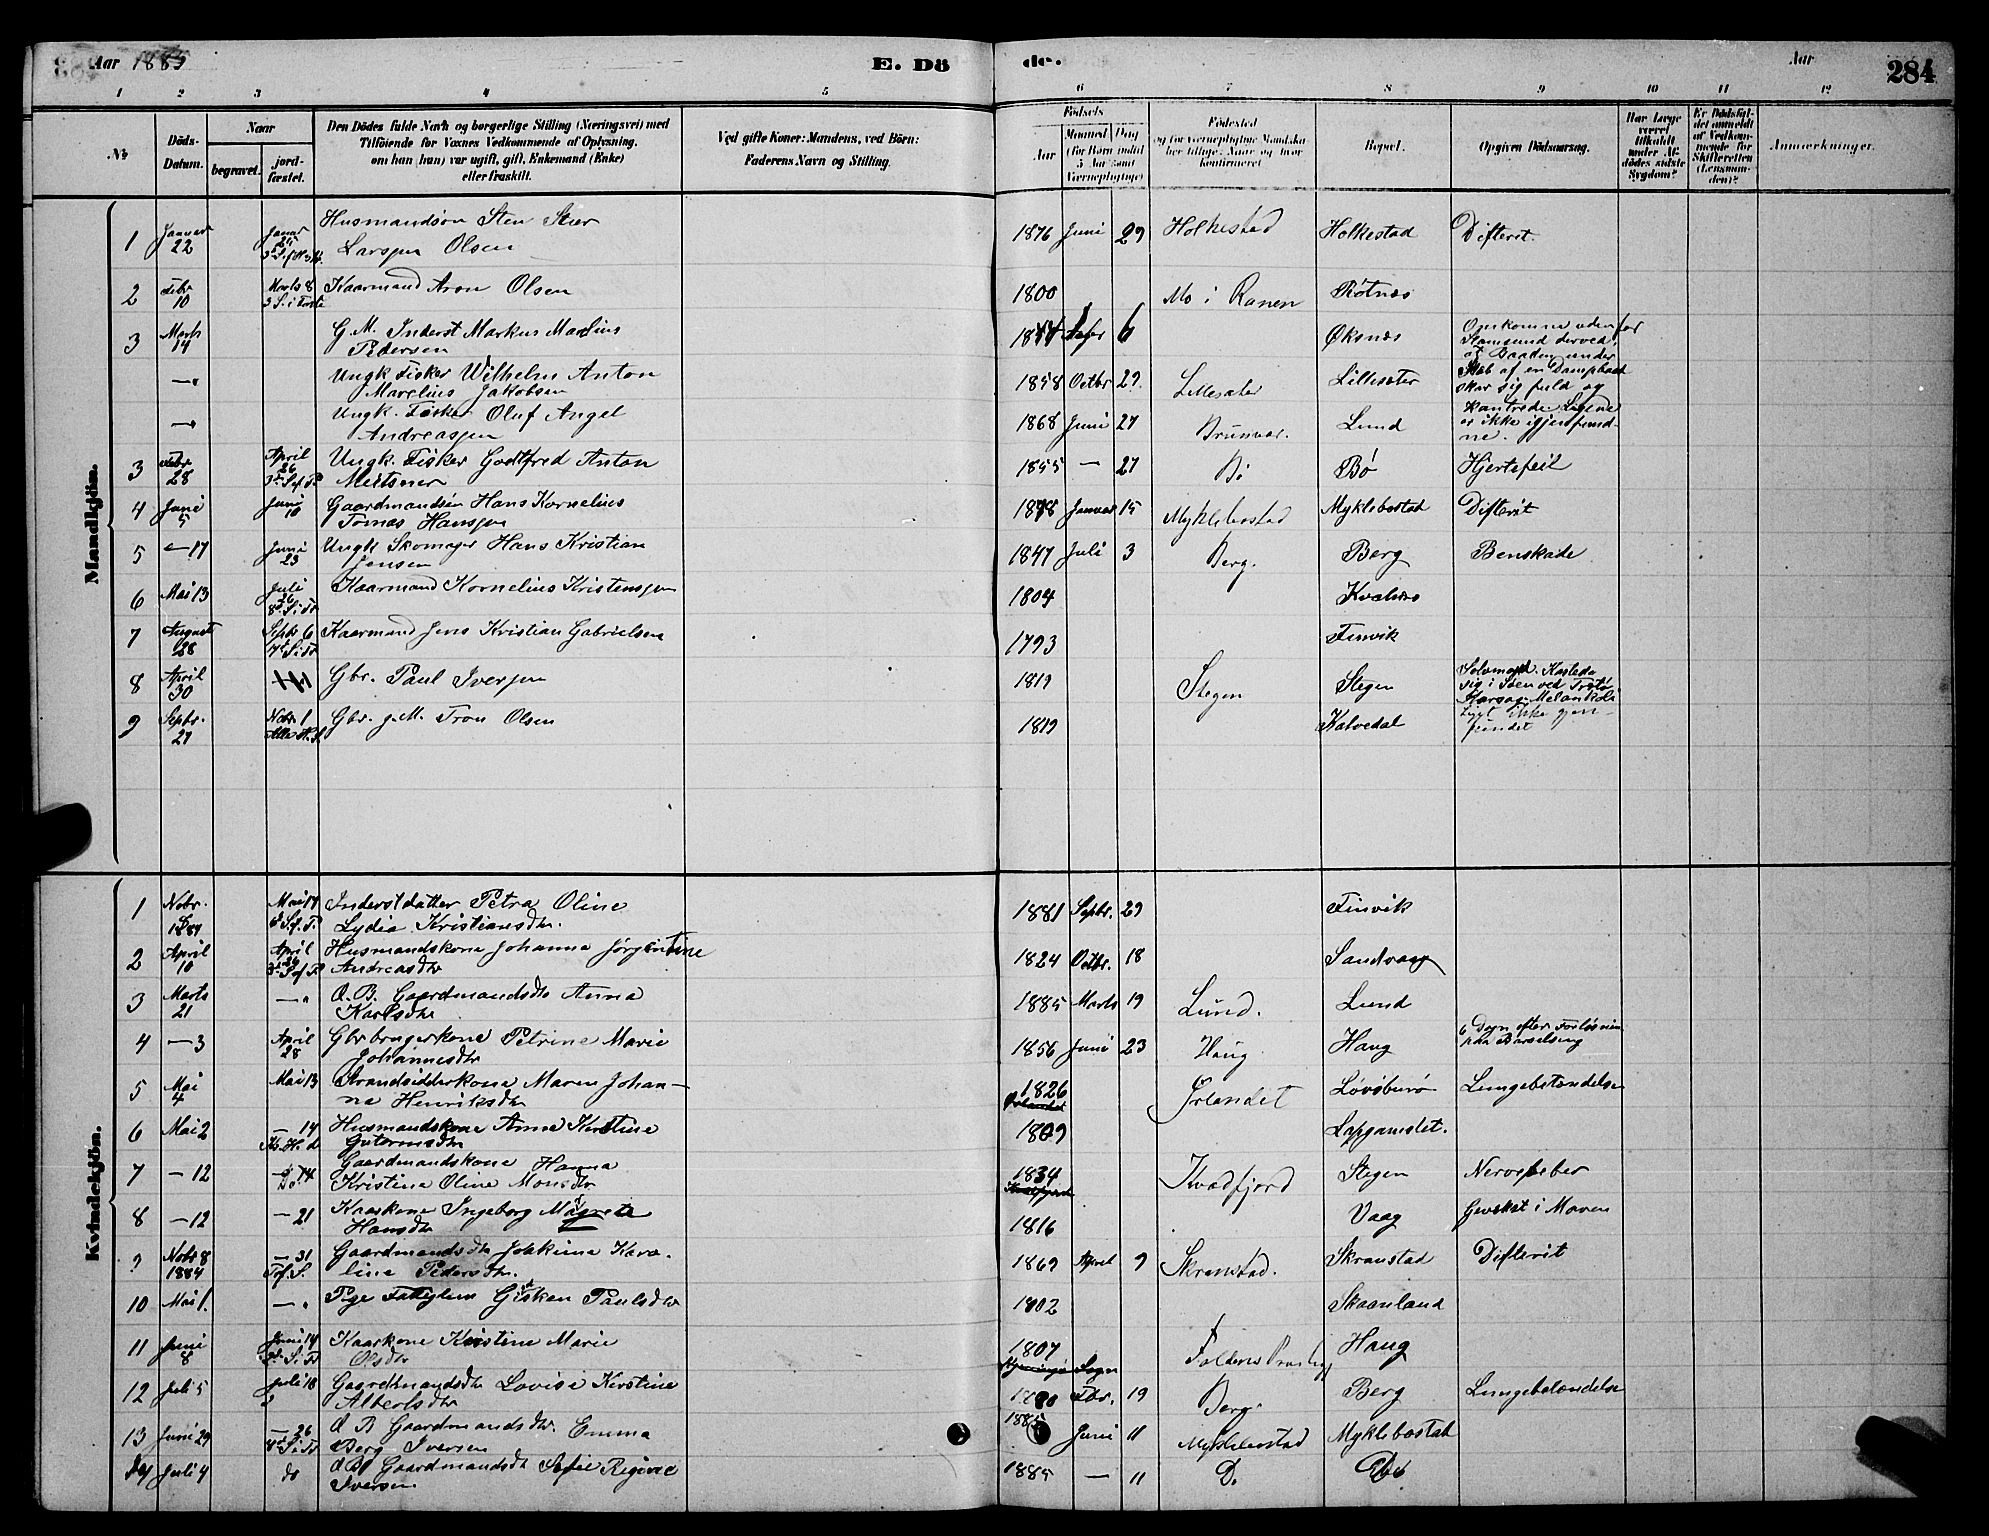 Aar 1885
E. Dö
de.
Aar
284
1 2 3 4 5 6 7 8 9 10 11 12
No
Döds-Datum.
Naar
begravet.
jord-fæstet.
Den Dödes fulde Navn og borgerlige Stilling (Næringsvei) med
Tilföiende for Voxnes Vedkommende af Oplysning,
om han (hun) var ugift, gift, Enkemand (Enke)
eller fraskilt.
Ved gifte Koner: Mandens, ved Börn:
Faderens Navn og Stilling.
Födsels
Aar
Maaned Dag
(for Börn indtil
5 Aar samt
Værnepligtige)
Födested
og for værnepligtige Mandskaber tillige: Naar og hvor konfirmeret
Bopæl.
Opgiven Dödsaarsag.
Har Læge
været
tilkaldt
under Af-
dödes sidste
Sygdom?
Er Dödsfal-
det anmeldt
af Vedkom-
mende for
Skifteretten
(Lensman-
den)?
Anmærkninger.
Mandkjön.
1 Januar 22 Januar Husmandsön Sten Stær
Larsen Olsen 1876 Juni 29 Holkestad Holkestad Difterit.
2 Febr 10 Marts 8 Kaarmand Aron Olsen 1800 Mo i Ranen Røtnæs
3 Marts 14 G. M. Inderst Markus Marlius
Pedersen 6 Øksnæs Omkomne udenfor
Stamsund derved,
at Baaden under
Ungk Fisker Wilhelm Anton
Marelius Jakobsen 1858 Octbr 29. Lillesæter Lillesæter Slæb af en Dampbaad
skar sig fuld og
Ungk. Fisker Oluf Angel
Andreassen 1868 Juni 27 Brunvær. Lund kantrede. Ligene
er ikke igjenfund-
ne.
3 Febr. 28 April 26 Ungk. Fisker Godtfred Anton
1855 — 27 Bö Bø Hjertefeil
4 Juni 5 Juni 10 Gaardmandsön Hans Kornelius
Tomas Hanssen 1878 Januar 15 Myklebostad Myklebostad Difterit
5 — 17 Juni 23 Ungk Skomager Hans Kristian
Jensen 1847 Juli 3 Berg. Berg Benskade
6 Mai 13 Juli 26 Kaarmand Kornelius Kristenssen 1804
7 August 28 Septr 6 Kaarmand Jens Kristian Gabrielsen 1793 Finvik
8 April 30 Gbr. Paul Iversen 1819 Stegen Stegen Selvmord. Kastede
sig i Søen ved
Aarsag: Melankoli
Liget ikke gjen-
fundet
9 Septbr. 27 Nobr 1 Gbr. g. M. Tron Olsen 1819 Kalvedal
Kvindekjön.
1 Nobr. 1884 Mai 17 Inderstdatter Petra Oline
Lydia Kristiansdtr. 1881 Septbr. 29 Finvik
2 April 10 April 26 Husmandskone Johanna Jørgentine
Andreasdtr 1824 Octbr. 18 Sandvaag
3 Marts 21 —" Ø. B. Gaardmandsdtr Anna
Karlsdtr 1885 Marts 19 Lund. Lund
4 — 3 April 28 Gbrbrugerkone Petrine Marie
Johannesdtr 1856 Juni 23 Haug Haug 6 Døgn efter Forløsning
paa Barselseng
5 Mai 4 Mai 13 Strandsidderkone Maren Johan-
na Henriksdtr 1826 Ørlandet Løvsburø Lungebetændelse
6 Mai 2 — 14 Husmandskone Anna Kirstine
Gutormsdtr 1809
7 — 12 — 14 Gaardmandskone Hanna
Kristina Oline Monsdtr 1834 Kvadfjord Stegen Nervefeber
8 — 12 — 21 Kaarkone Ingeborg Magreta
Hansdtr 1816 Vaag Gevækst i Maven
9 Nobr 8 1884 — 31 Gaardmandsdtr Joakima Karo-
line Pedersdtr. 1869 April 9 Skranstad. Skranstad Difterit
10 Mai 1. —" Pige Fattiglem Gisken Paulsdtr 1802 Skaanland
11 Juni 8 Juni 14 Kaarkone Kristine Marie
Olsdtr 1807 Foldens Haug
12 Juli 5 Juli 18 Gaardmandsdtr Lovise Kirstine
Albertsdtr 1880 Fbr. 19 Berg. Berg Lungebetændelse
13 Juni 29 — 26 Ø B Gaardmandsdtr. Emma
Berg Iversen 1885 Juni 11 Myklebostad Myklebostad
14 Juli 4 do Ø B Gaardmandsdtr Sofie Regine
Iversen 1885 — 11 D. Do